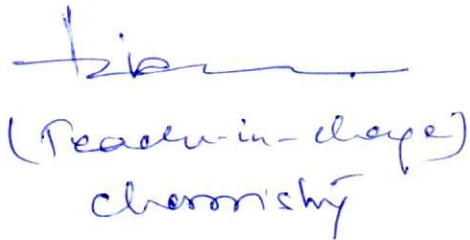 (Teacher-in-charge)
Chemistry